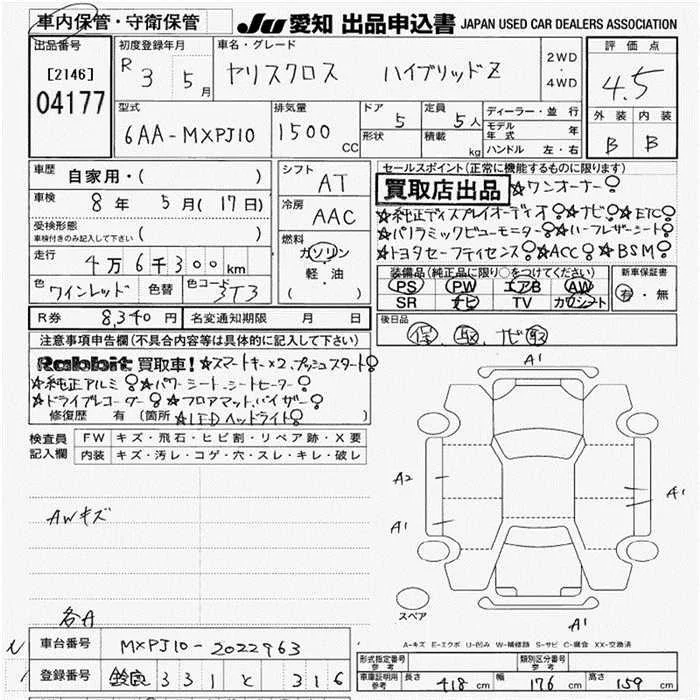 車内保管・守衛保管
JU 愛知 出品申込書 JAPAN USED CAR DEALERS ASSOCIATION
出品番号 初度登録年月 車名・グレード 評価点
[2146] R 3 5月 ヤリスクロス ハイブリッドZ 2WD・4WD 4.5
04177
型式 排気量 ドア 定員 ディーラー・並行 外装 内装
6AA-MXPJ10 1500 CC 5 5人 モデル年式 年 B B
形状 積載 kg ハンドル 左・右
車歴 自家用・( )
車検 8年 5月(17日)
受検形態
車検付きのみ記入して下さい ( )
走行 4万6千300km
色 ワインレッド 色替 色コード 3T3
シフト AT
冷房 AAC
燃料 ガソリン
軽・油
( )
セールスポイント(正常に機能するものに限ります)
買取店出品 ☆ワンオーナー♀
☆純正ディスプレイオーディオ♀☆ナビ♀☆ETC♀
☆パノラミックビューモニター♀☆ハーフレザーシート♀
☆トヨタセーフティセンス♀☆ACC♀☆BSM♀
装備品(純正品に限り○をつけてください) 新車保証書
PS PW エアB AW 有・無
SR ナビ TV カワシート
R券 8,340円 名変通知期限 月 日
後日品
保.取.ナビ取
注意事項申告欄(不具合内容等は具体的に記入して下さい)
Rabbit 買取車!☆スマートキー×2、プッシュスタート♀
☆純正アルミ♀☆パワーシート、シートヒーター♀
☆ドライブレコーダー♀☆フロアマット、バイザー♀
修復歴 有(箇所 ☆LEDヘッドライト♀
検査員記入欄 FW キズ・飛石・ヒビ割・リペア跡・X要
内装 キズ・汚レ・コゲ・穴・スレ・キレ・破レ
A1
A2
A1
A1
A1
スペア
AWキズ
各A
A-キズ E-エクボ U-凹み W-補修跡 S-サビ C-腐食 XX-交換済
車台番号 MXPJ10-2022963
登録番号 331 と 316
形式指定番号 参考 類別区分番号 参考
車庫証明用 参考 長さ 418cm 幅 176cm 高さ 159cm